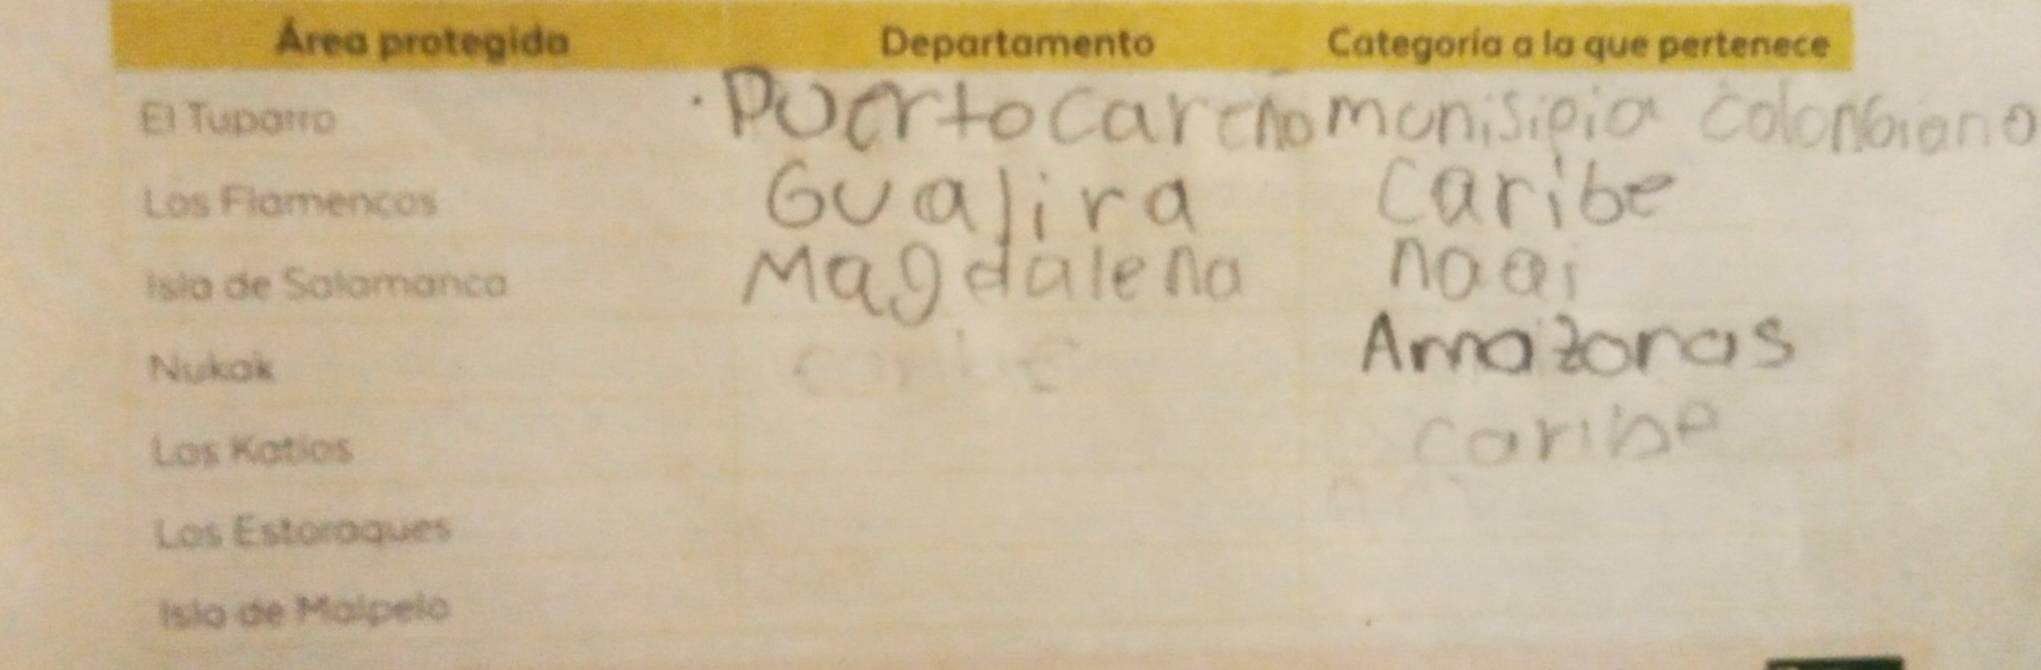 Área protegida Departamento Categoría a la que pertenece
El Tuparro Puerto carcño munisipia colonbiano
Los Flamencos Gualjira caribe
Isla de Salamanca Magdalena naai
Nukak Amazonas
Los Katíos caribe
Los Estoraques
Isla de Malpelo